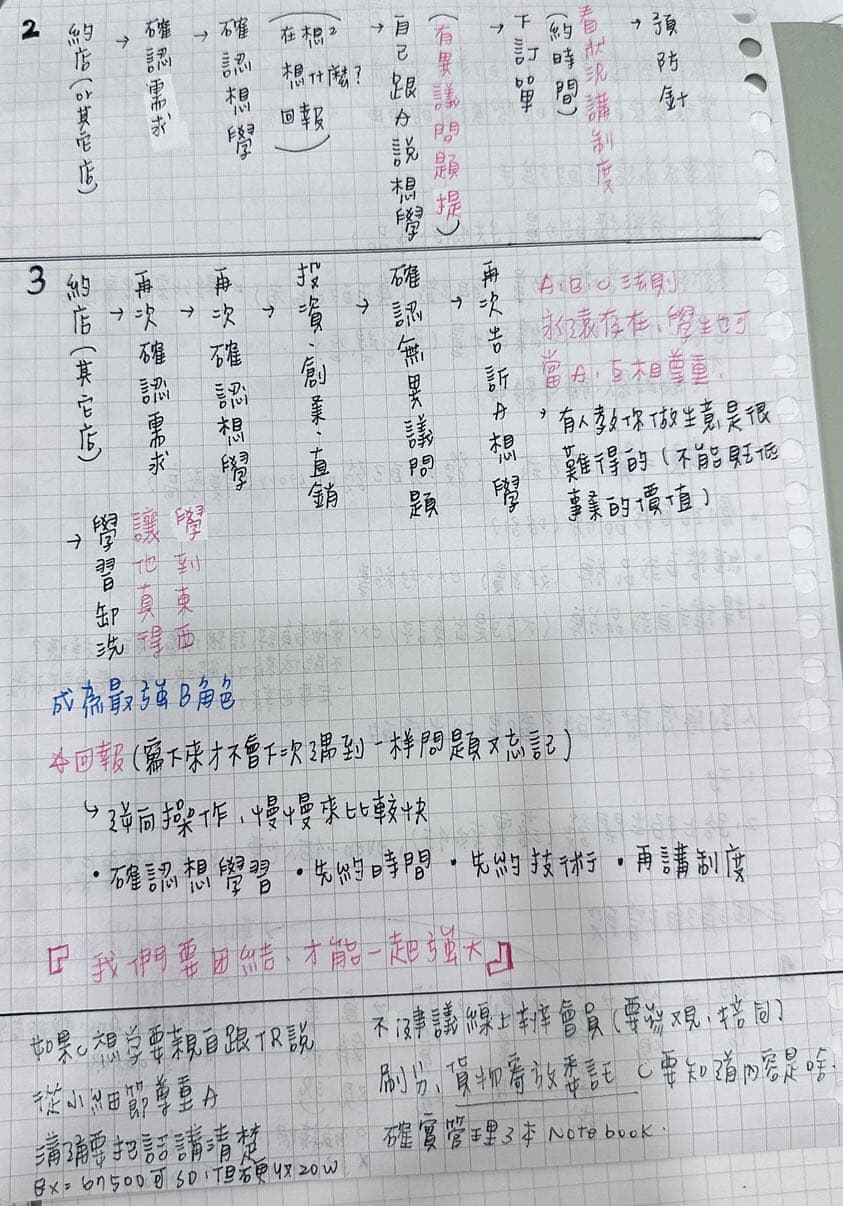 2
約店(or其它店)
→ 確認需求
→ 確認想學
(在想2
想什麼?
回報)
→ 自己跟A說想學
(有異議問題提)
→ 下訂單
(約時間)
看狀況講制度
→ 預防針
3
約店(其它店)
→ 再次確認需求
→ 再次確認想學
→ 投資、創業、直銷
→ 確認無異議問題
→ 再次告訴A想學
A.B.C法則
永遠存在,學生也可
當A,互相尊重.
, 有人教你做生意是很
難得的(不能貶低
事業的價值)
→ 學習卸洗
讓他真得
學到東西
成為最強B角色
☆回報(寫下來才不會下次遇到一樣問題又忘記)
↳逆向操作,慢慢來比較快
・確認想學習 ・先約時間 ・先約技術 ・再講制度
『我們要団結、才能一起強大』
如果C想学要親自跟TR說
從小細節尊重A
講獎要把話講清楚
Ex= 67500可SD,但硬4x20W
不建議線上辦會員(要發現,陪同)
刷分、貨物寄放委託 C要知道內容是啥.
確實管理3本Notebook.